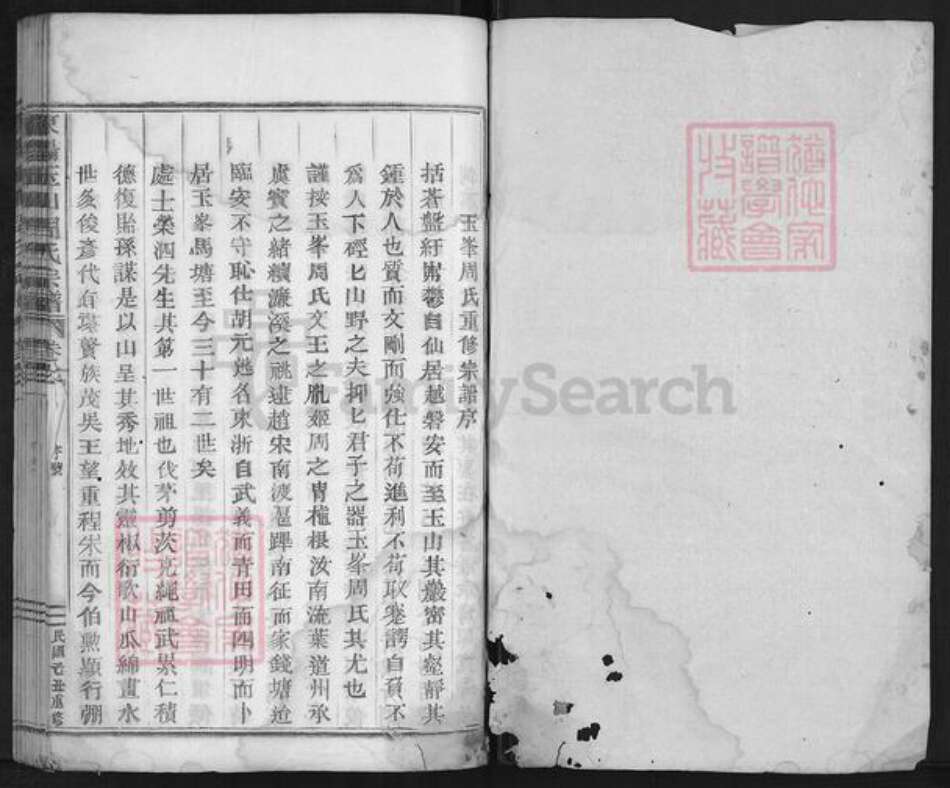 玉峯周氏重修宗譜序
括蒼盤紆鬱自仙居越磐安而至玉山其巖密其壑靜其
鍾於人也質而文剛而強仕不苟進利不苟取蹇諤自負不
爲人下硜匕山野之夫抑匕君子之器玉峯周氏其尤也
謹按玉峯周氏文王之胤姬周之胄植根汝南流葉道州承
虞賓之緒纘濂溪之祧逮趙宋南渡扈蹕南征而家錢塘迨
臨安不守恥仕胡元逃名東浙自武義而青田而四明而卜
居玉峯馬塘至今三十有二世矣
處士榮泗先生其第一世祖也伐茅剪茨克繩祖武累仁積
德復貽孫謀是以山呈其秀地效其靈椒衍歌山瓜綿畫水
世多俊彥代有賢族茂吳王望重程朱而今伯勲顯行弸
玉山周氏宗譜
民國
重修
FamilySearch
譜學會
收藏